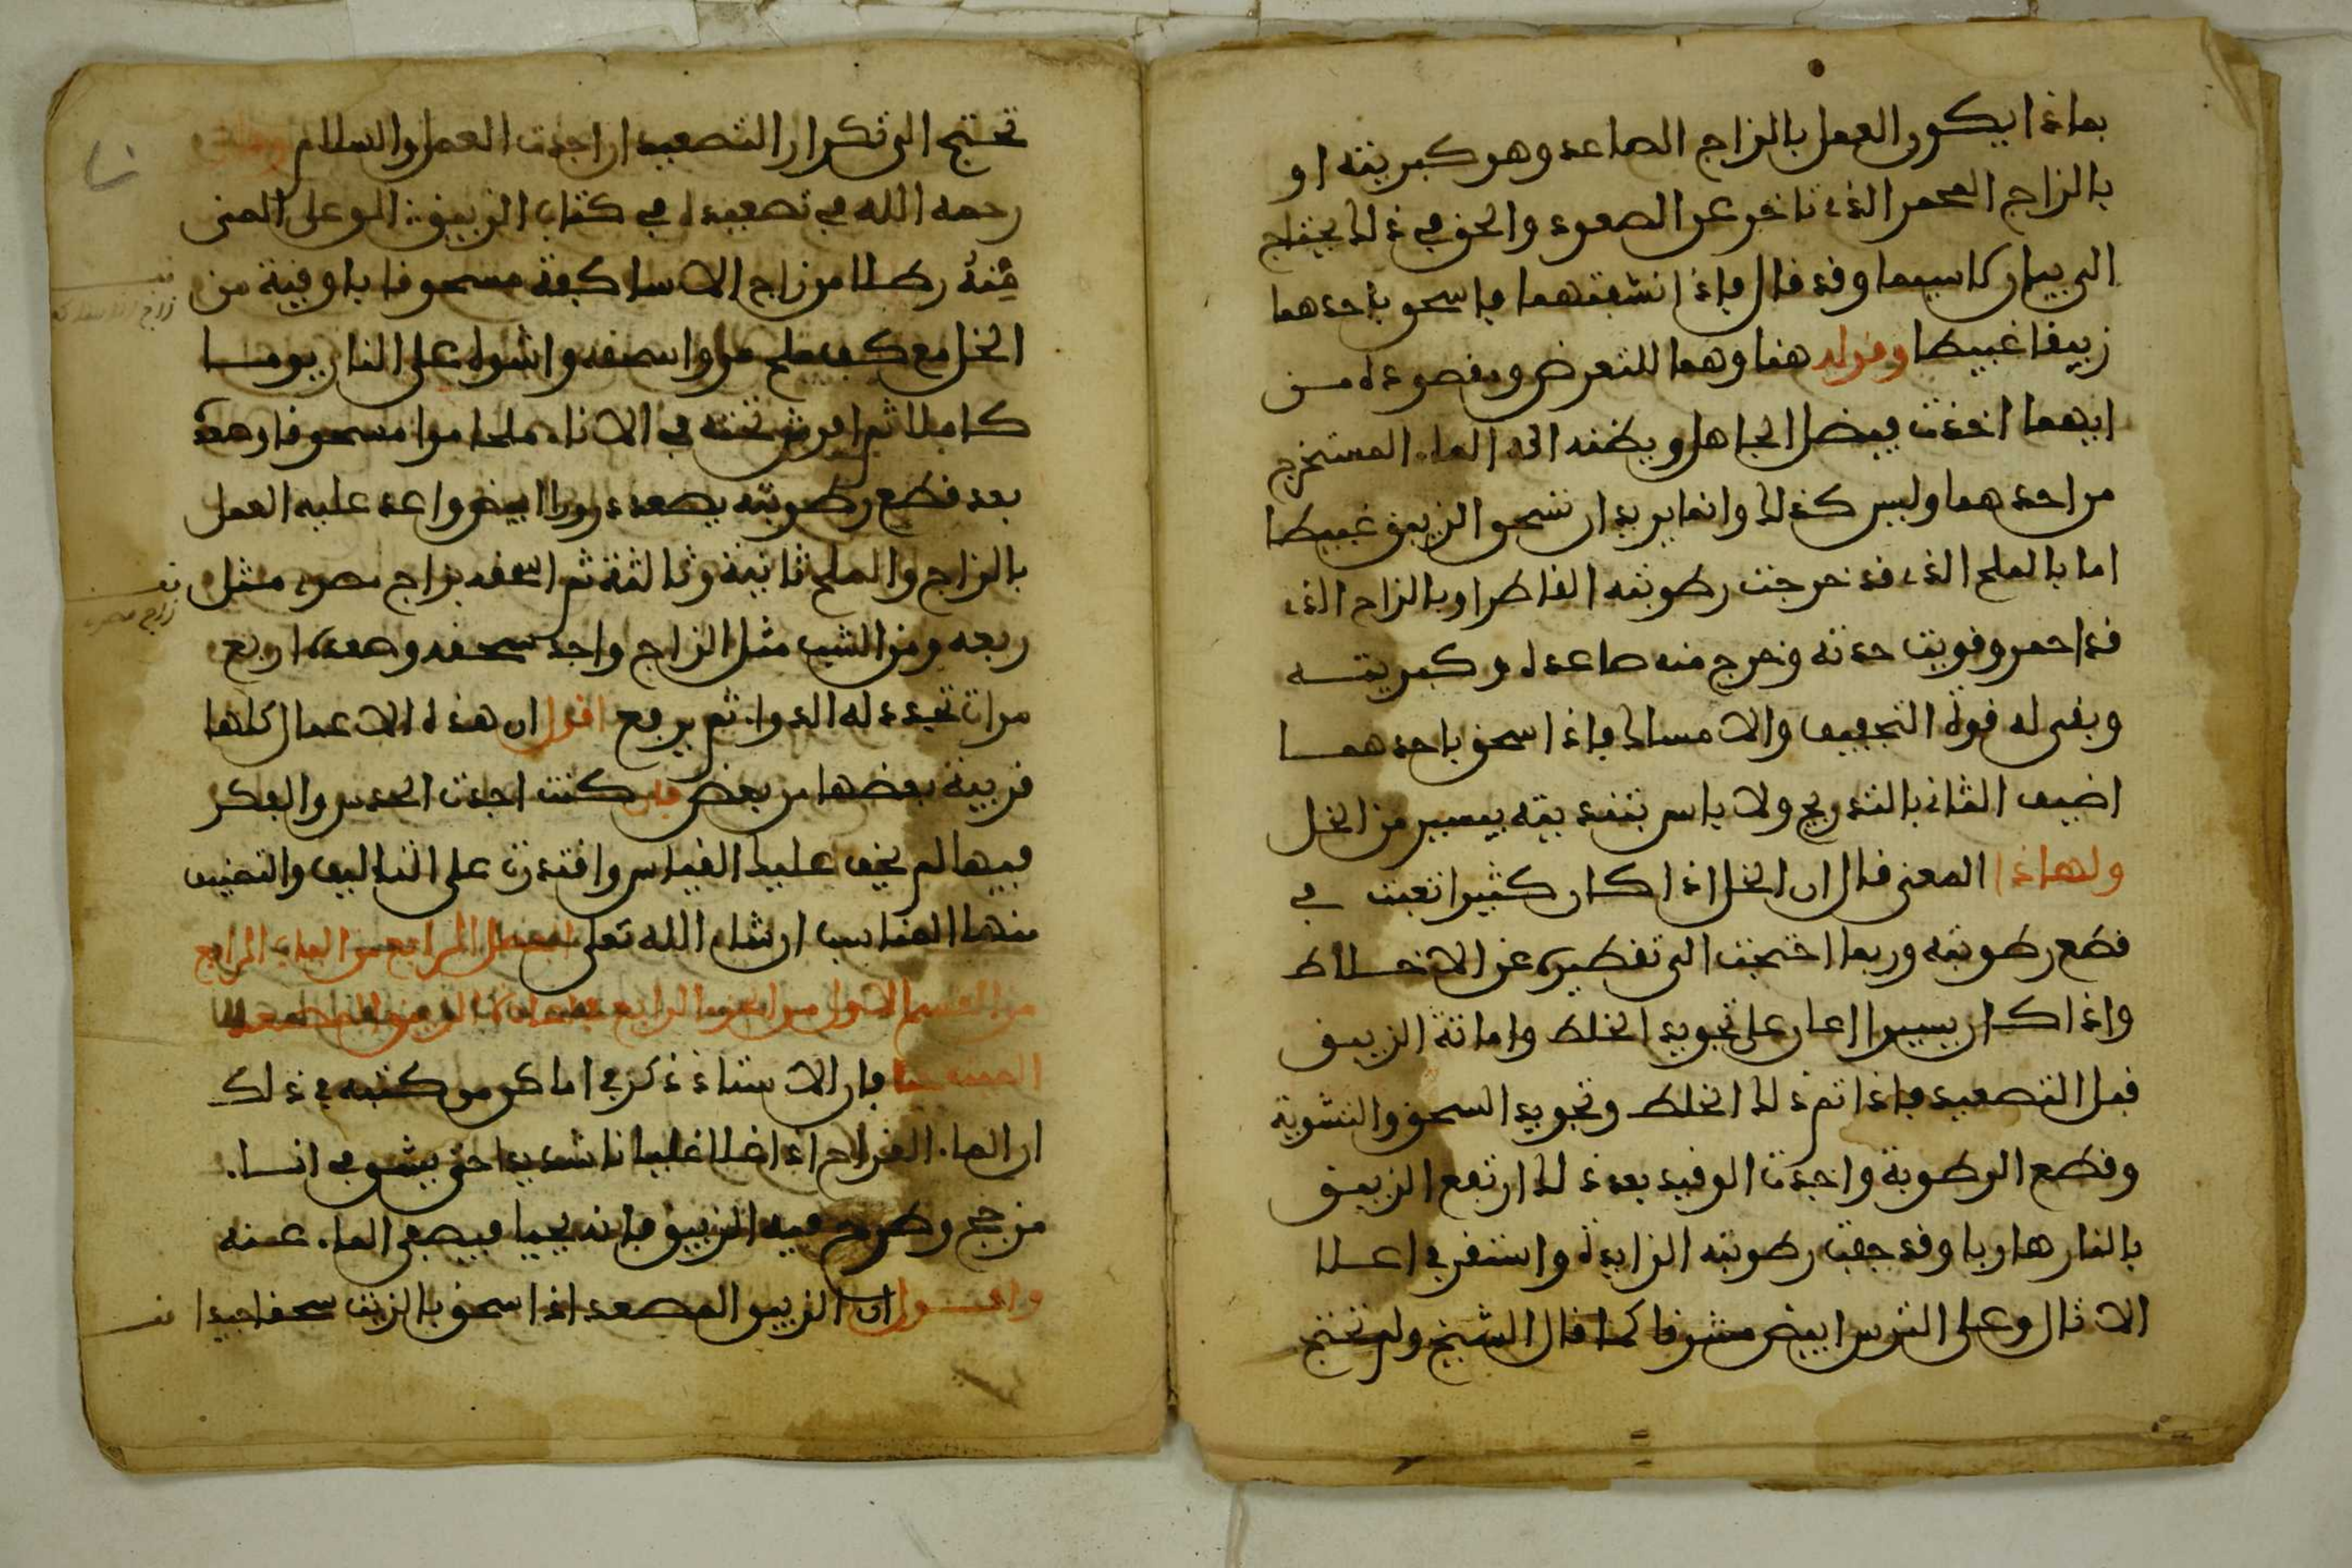 بماذا يكون العمل بالزاج الصاعد وهو كبريته او
بالزاج المحمر الذي تاخر عن الصعود والحق في ذلك يحتاج
الى بيان لاسيما وقد قال فاذا نشفتهما فاسحق باحدهما
زيبقا غبيطا وقوله هنا وهما للتعرض ومقصوده من
ايهما اخذت فيضل الجاهل ويظنه انه الماء المستخرج
من احدهما وليس كذلك وانما يريد ان تسحق الزيبق غبيطا
اما بالملح الذي قد خرجت رطوبته القاطر او بالزاج الذي
قد احمر وقويت حدته وخرج منه صاعده وكبريته
وبقى له قوة التجفيف والامساك فاذا سحق باحدهما
اضيف الثاني بالتدريج ولا باس بتنديته بيسير من الخل
ولهاذا المعنى قال ان الخل اذا كان كثيرا تعبت في
قطع رطوبته وربما احتجت الى تقطيره عن الاخلاط
واذا كان يسيرا اعان على تجويد الخلط واماتة الزيبق
قبل التصعيد فاذا تم ذلك الخلط وتجويد السحق والتشوية
وقطع الرطوبة واجدت الوقيد بعد ذلك ارتفع الزيبق
بالنار هاربا وقد جفت رطوبته الزايدة واستقر في اعلا
الاثال وعلى الترس ابيض مشرقا كما قال الشيخ ولم تحتج
تحتج الى تكرار التصعيد ان اجدت العمل والسلام
رحمه الله في تصعيده في كتاب الزيبق
رطلا من زاج الاساكفة مسحوقا باوقية من
الخل مع كف ملح مر واسحقه واشوه على النار يوما
كاملا ثم افرش تحته في الاناء ملحا مرا مسحوقا وهذه
بعد قطع رطوبته يصعد ابيض واعد عليه العمل
بالزاج والملح ثانية وثالثة ثم اسحقه بزاج مصري مثل
ربعه ومن الشب مثل الزاج واجد سحقه وصعده اربع
مرات تجدد له الدواء ثم يرفع اقول ان هذه الاعمال كلها
قريبة بعضها من بعض فان كنت اجدت الحدس والفكر
فيها لم يخف عليك القياس واقتدرت على التاليف والتضييف
منها المناسب ان شاء الله تعلى الفصل الرابع من الباب الرابع
من القسم الاول من الجزء الرابع
فان الاستاذ ذكر في اماكن من كتبه في ذلك
ان الماء القراح اذا غلا غليانا شديدا حتى في اناء
من وطرح فيه الزيبق فانه يحيا فيصفى الماء عنه
ان الزيبق المصعد اذا سحق بالزيت سحقا جيدا